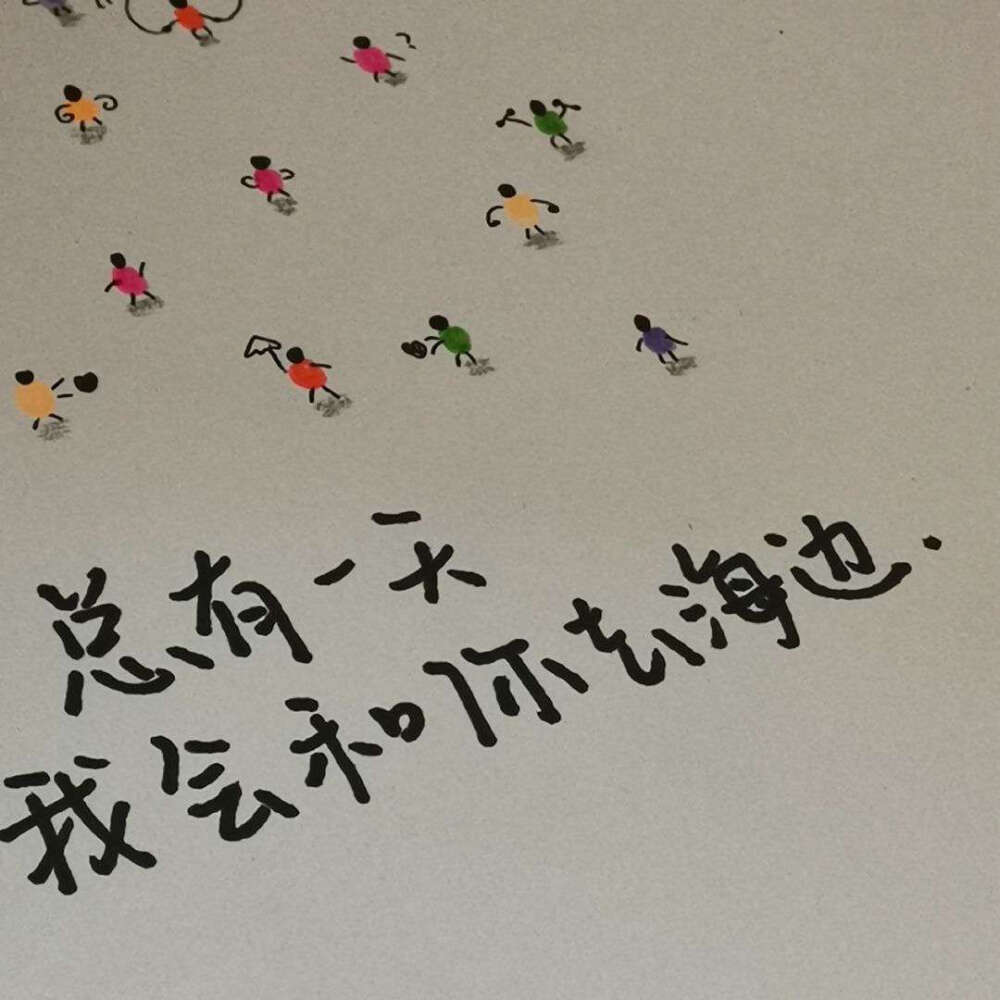 总有一天
我会和你去海边.